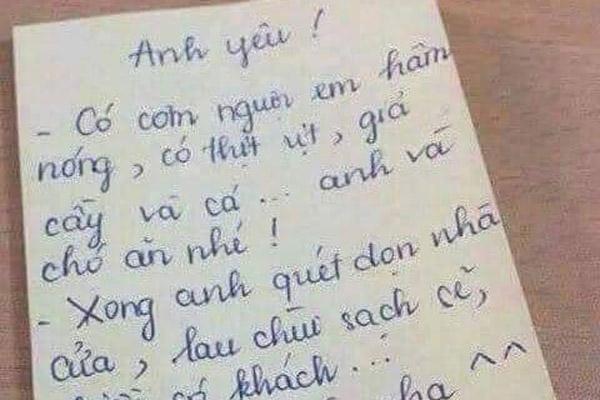 Anh yêu !
- Có cơm nguội em hâm
nóng, có thịt vịt, giả
cầy và cá ... anh và
chó ăn nhé !
- Xong anh quét dọn nhà
cửa, lau chùi sạch sẽ,
có khách ...
ha ^^